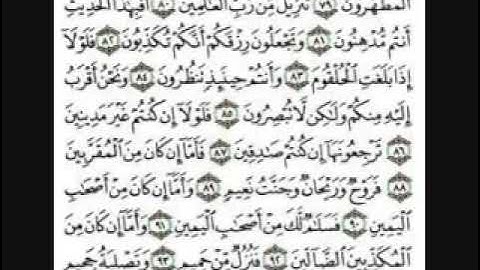 ٱلْمُطَهَّرُونَ ٧٩ تَنزِيلٌ مِّن رَّبِّ ٱلْعَٰلَمِينَ ٨٠ أَفَبِهَٰذَا ٱلْحَدِيثِ
أَنتُم مُّدْهِنُونَ ٨١ وَتَجْعَلُونَ رِزْقَكُمْ أَنَّكُمْ تُكَذِّبُونَ ٨٢ فَلَوْلَآ
إِذَا بَلَغَتِ ٱلْحُلْقُومَ ٨٣ وَأَنتُمْ حِينَئِذٍ تَنظُرُونَ ٨٤ وَنَحْنُ أَقْرَبُ
إِلَيْهِ مِنكُمْ وَلَٰكِن لَّا تُبْصِرُونَ ٨٥ فَلَوْلَآ إِن كُنتُمْ غَيْرَ مَدِينِينَ
٨٦ تَرْجِعُونَهَآ إِن كُنتُمْ صَٰدِقِينَ ٨٧ فَأَمَّآ إِن كَانَ مِنَ ٱلْمُقَرَّبِينَ
٨٨ فَرَوْحٌ وَرَيْحَانٌ وَجَنَّتُ نَعِيمٍ ٨٩ وَأَمَّآ إِن كَانَ مِنْ أَصْحَٰبِ
ٱلْيَمِينِ ٩٠ فَسَلَٰمٌ لَّكَ مِنْ أَصْحَٰبِ ٱلْيَمِينِ ٩١ وَأَمَّآ إِن كَانَ مِنَ
ٱلْمُكَذِّبِينَ ٱلضَّآلِّينَ ٩٢ فَنُزُلٌ مِّنْ حَمِيمٍ ٩٣ وَتَصْلِيَةُ جَحِيمٍ